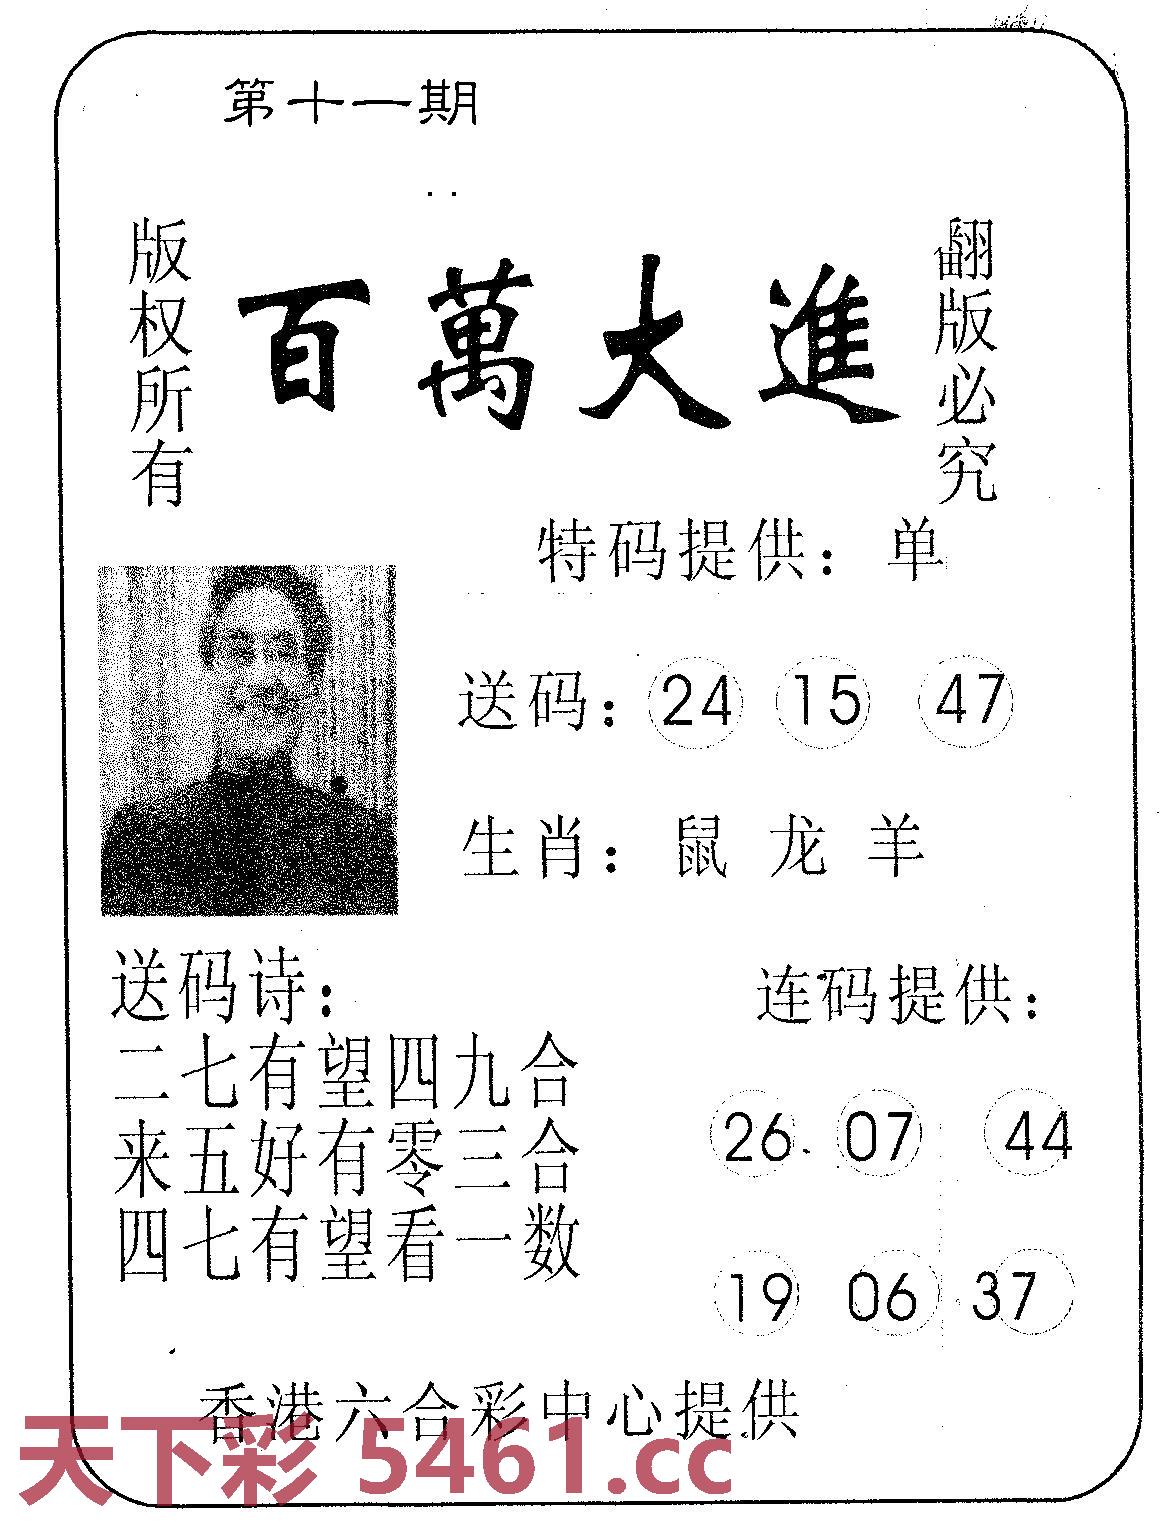 第十一期
版权所有
百萬大進
翻版必究
特码提供：单
送码：24 15 47
生肖：鼠 龙 羊
送码诗：
二七有望四九合
来五好有零三合
四七有望看一数
连码提供：
26 07 44
19 06 37
香港六合彩中心提供
天下彩 5461.cc